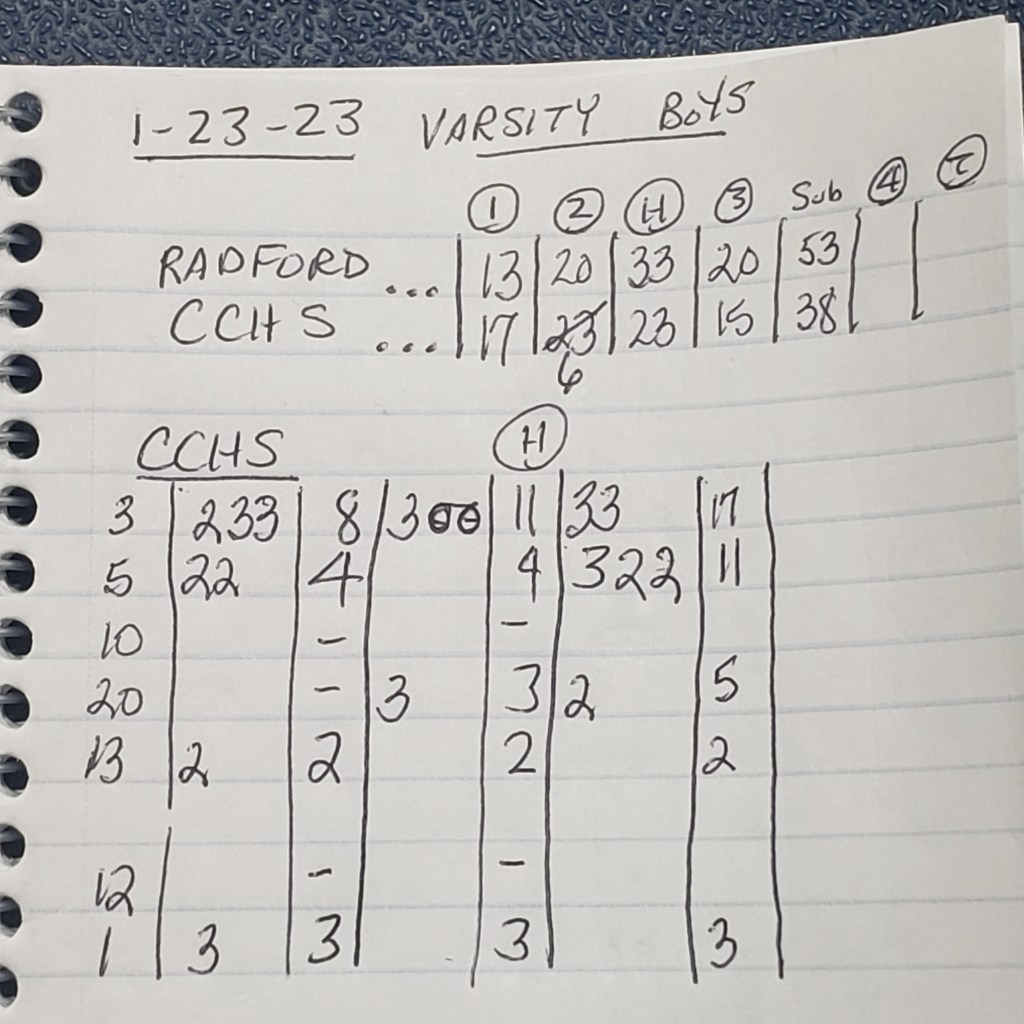 1-23-23 VARSITY BOYS
① ② Ⓗ ③ Sub ④ Ⓣ
RADFORD ... 13 20 33 20 53
CCHS ... 17 23 23 15 38
6
CCHS Ⓗ
3 233 8 300 11 33 17
5 22 4 4 322 11
10 - -
20 - 3 3 2 5
13 2 2 2 2
12 - -
1 3 3 3 3